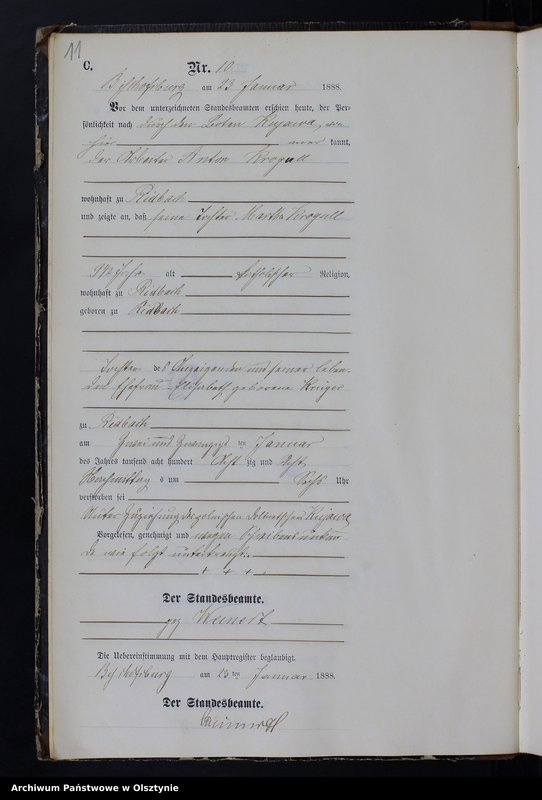 11
C.
Nr. 10.
Bischofsburg am 23 Januar 1888.
Vor dem unterzeichneten Standesbeamten erschien heute, der Per-
sönlichkeit nach durch den Boten Kujawa, von
hier kannt,
der Arbeiter Anton Krogull
wohnhaft zu Ridbach
und zeigte an, daß seine Tochter Martha Krogull
Jahre alt katholischer Religion,
wohnhaft zu Ridbach
geboren zu Ridbach
Tochter des Anzeigenden und seiner leben-
den Ehefrau Elisabeth geborene Krüger
zu Ridbach
am zwei und zwanzigsten Januar
des Jahres tausend acht hundert Acht zig und Acht
Nachmittag s um Sechs Uhr
verstorben sei
Unter Zuziehung des polnischen Dolmetschers Kujawa
Vorgelesen, genehmigt und wegen Schreibens
wie folgt
+ + +
Der Standesbeamte.
gez Wienert
Die Uebereinstimmung mit dem Hauptregister beglaubigt.
Bischofsburg am 23 ten Januar 1888.
Der Standesbeamte.
Archiwum Państwowe w Olsztynie